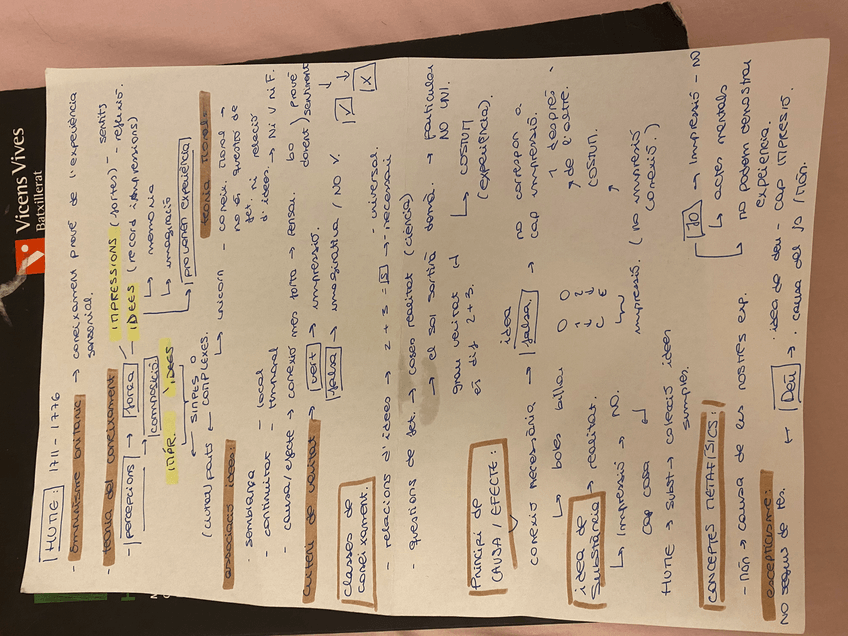 Vicens Vives
Batxillerat
HUME: 1711 - 1776
- empirisme britànic → coneixament prové de l'experiència
sensorial.
- teoria del coneixament IMPRESSIONS (fortes) - sentits
- percepcions → força - IDEES (record impressions) - reflexió.
→ composició ↳ memoria
↳ imaginació
IMPR. IDEES ↳ provanen experiència
← SIMPLES o
(curtes) parts ← COMPLEXES.
↳ unicorn
teoria moral:
- coneix. moral →
no és questió de
fet, ni relació
d'idees. → Ni V Ni F.
associació idees:
- semblança
- continuitat - local
- temporal
- causa/efecte → conexió més forta → pensar.
bo ) prové
dolent ) sentiment
criteri de veritat → vert → impressió.
falsa → imaginativa / NO V.
classes de
coneixament.
- relacions d'idees → 2 + 3 = 5 → - necessari
- universal.
- questions de fet. → coses realitat (ciència)
→ el sol sortirà demà. → particular
NO UNI.
grau veritat ↲
és dif 2 + 3.
↳ COSTUM
(experiència)
Principi de
CAUSA / EFECTE:
conexió necessària → idea
falsa. → no correspon a
cap impressió.
↳ boles billar
1 després
de l'altre.
COSTUM.
idea de
Substància → realitat.
↳ impressió → NO.
↳ impressió. (no impressió
conexió.)
cap cosa ↲
HUME → subst → colecció idees
simples.
CONCEPTES METAFÍSICS:
JO → Impressió - NO
↳ actes mentals
- Món → causa de les nostres exp.
↳ no podem demostrar
experiencia.
escepticisme:
NO segurs de res.
Déu → · idea de deu - cap IMPRESIÓ.
· causa del jo / món.